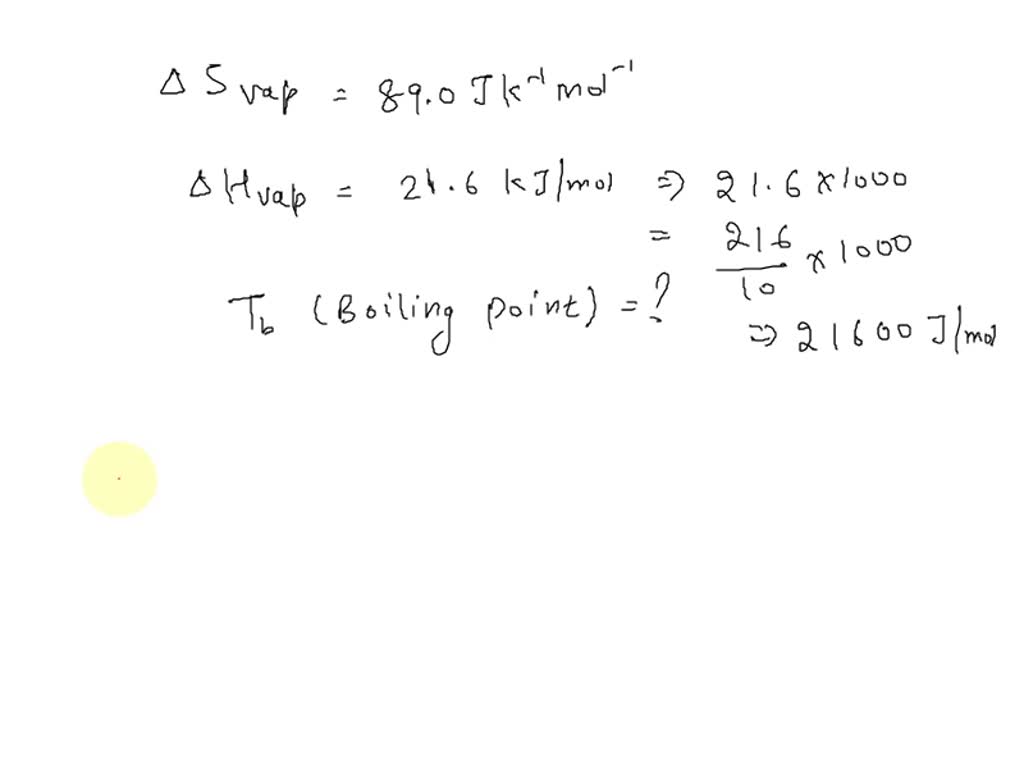 Δ S vap = 89.0 J k⁻¹ mol⁻¹
Δ Hvap = 21.6 kJ/mol ⇒ 21.6 × 1000
= 216/10 × 1000
Tb (Boiling point) = ?
⇒ 21600 J/mol